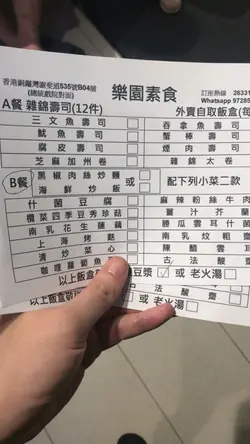 香港銅鑼灣謝斐道535號B04舖
(總統戲院對面)
樂園素食
訂座熱線 26331
Whatsapp 97285
A餐 雜錦壽司(12件)
外賣自取飯盒(每
三文魚壽司
吞拿魚壽司
魷魚壽司
蟹棒壽司
腐皮壽司
煙肉壽司
芝麻加州卷
雜錦太卷
B餐
黑椒肉絲炒麵
或
海鮮炒飯
配下列小菜二款
什菌豆腐
麻辣粉絲牛肉
欖菜四季豆秀珍菇
薑汁芥蘭
南乳花生蓮藕
勝瓜雲耳什菌
上海烤麩
南乳炆粗齋
清炒菜心
陳醋雲耳
咖喱蘿蔔魚
古法酸齋
以上飯盒 豆漿 ✓ 或 老火湯
以上飯盒 或 老火湯